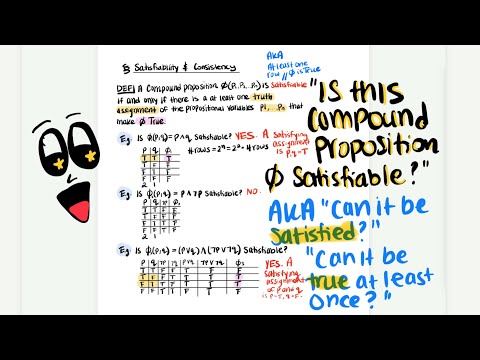 § Satisfiability & Consistency
AKA
At least one
row // Φ is True
DEF| A Compound proposition Φ(P₁,P₂,...Pₙ) is Satisfiable
if and only if there is a at least one truth
assignment of the propositional variables P₁,...Pₙ that
make Φ True.
Eg. Is Φ(P,q)=P∧q Satisfiable? YES. A Satisfying
assignment
is P,q=T
#rows=2ⁿ=2²=4 rows
P q Φ
T T T
Eg. Is Φ(P,q)= P∧¬P Satisfiable? NO.
Eg. Is Φ(P,q)=(P∨q)∧(¬P∨¬q) Satisfiable?
P q ¬P ¬q P∨q ¬P∨¬q Φ₃
YES. A
Satisfying
assignment
of P and q
is P=T, q=F.
"Is this
Compound
Proposition
Φ Satisfiable?"
AKA "Can it be
Satisfied?"
"Can it be
true at least
Once?"